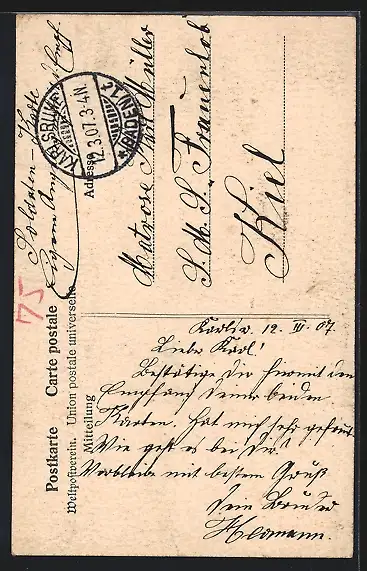 Soldaten-Karte
Eigene Ang. d. Empf.
Postkarte Carte postale
Weltpostverein. Union postale universelle
KARLSRUHE
12.3.07.3-4N.
* (BADEN) 1.
Adresse
Matrose Karl Müller
S.M.S. Frauenlob
Kiel
75
Mitteilung
Karlsr. 12. III. 07
Liebr Karl!
Bestätige Dir hiermit den
Empfang deiner beiden
Karten. Hat mich sehr gefreut.
Wie geht es bei Dir?
Verbleibe mit bestem Gruß
Dein Bruder
Hermann.